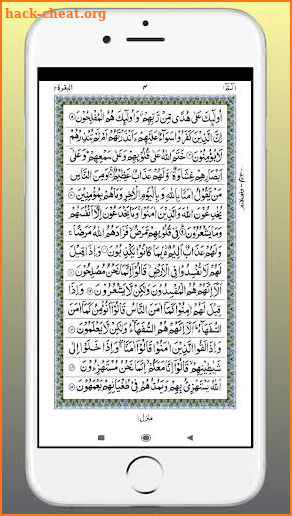 hack-cheat.org
البقرة ٢
٣
الٓمّٓ ١
اُولٰٓئِكَ عَلٰى هُدًى مِّنْ رَّبِّهِمْ ۙ وَاُولٰٓئِكَ هُمُ الْمُفْلِحُوْنَ ۝۵
اِنَّ الَّذِيْنَ كَفَرُوْا سَوَآءٌ عَلَيْهِمْ ءَاَنْذَرْتَهُمْ اَمْ لَمْ تُنْذِرْهُمْ
لَا يُؤْمِنُوْنَ ۝۶ خَتَمَ اللّٰهُ عَلٰى قُلُوْبِهِمْ وَعَلٰى سَمْعِهِمْ ؕ وَعَلٰٓى
اَبْصَارِهِمْ غِشَاوَةٌ ؗ وَّلَهُمْ عَذَابٌ عَظِيْمٌ ۝۷ وَمِنَ النَّاسِ
مَنْ يَّقُوْلُ اٰمَنَّا بِاللّٰهِ وَبِالْيَوْمِ الْاٰخِرِ وَمَا هُمْ بِمُؤْمِنِيْنَ ۝۸
يُخٰدِعُوْنَ اللّٰهَ وَالَّذِيْنَ اٰمَنُوْا ۚ وَمَا يَخْدَعُوْنَ اِلَّاۤ اَنْفُسَهُمْ
وَمَا يَشْعُرُوْنَ ۝۹ فِيْ قُلُوْبِهِمْ مَّرَضٌ ۙ فَزَادَهُمُ اللّٰهُ مَرَضًا ۚ
وَلَهُمْ عَذَابٌ اَلِيْمٌۢ ۙ بِمَا كَانُوْا يَكْذِبُوْنَ ۝۱۰ وَاِذَا قِيْلَ
لَهُمْ لَا تُفْسِدُوْا فِي الْاَرْضِ ۙ قَالُوْٓا اِنَّمَا نَحْنُ مُصْلِحُوْنَ ۝۱۱
اَلَاۤ اِنَّهُمْ هُمُ الْمُفْسِدُوْنَ وَلٰكِنْ لَّا يَشْعُرُوْنَ ۝۱۲ وَاِذَا
قِيْلَ لَهُمْ اٰمِنُوْا كَمَاۤ اٰمَنَ النَّاسُ قَالُوْٓا اَنُؤْمِنُ كَمَاۤ اٰمَنَ
السُّفَهَآءُ ؕ اَلَاۤ اِنَّهُمْ هُمُ السُّفَهَآءُ وَلٰكِنْ لَّا يَعْلَمُوْنَ ۝۱۳
وَاِذَا لَقُوا الَّذِيْنَ اٰمَنُوْا قَالُوْٓا اٰمَنَّا ۚ وَاِذَا خَلَوْا اِلٰى
شَيٰطِيْنِهِمْ ۙ قَالُوْٓا اِنَّا مَعَكُمْ ۙ اِنَّمَا نَحْنُ مُسْتَهْزِءُوْنَ ۝۱۴
اَللّٰهُ يَسْتَهْزِئُ بِهِمْ وَيَمُدُّهُمْ فِيْ طُغْيَانِهِمْ يَعْمَهُوْنَ ۝۱۵
منزل ١
hack-cheat.org